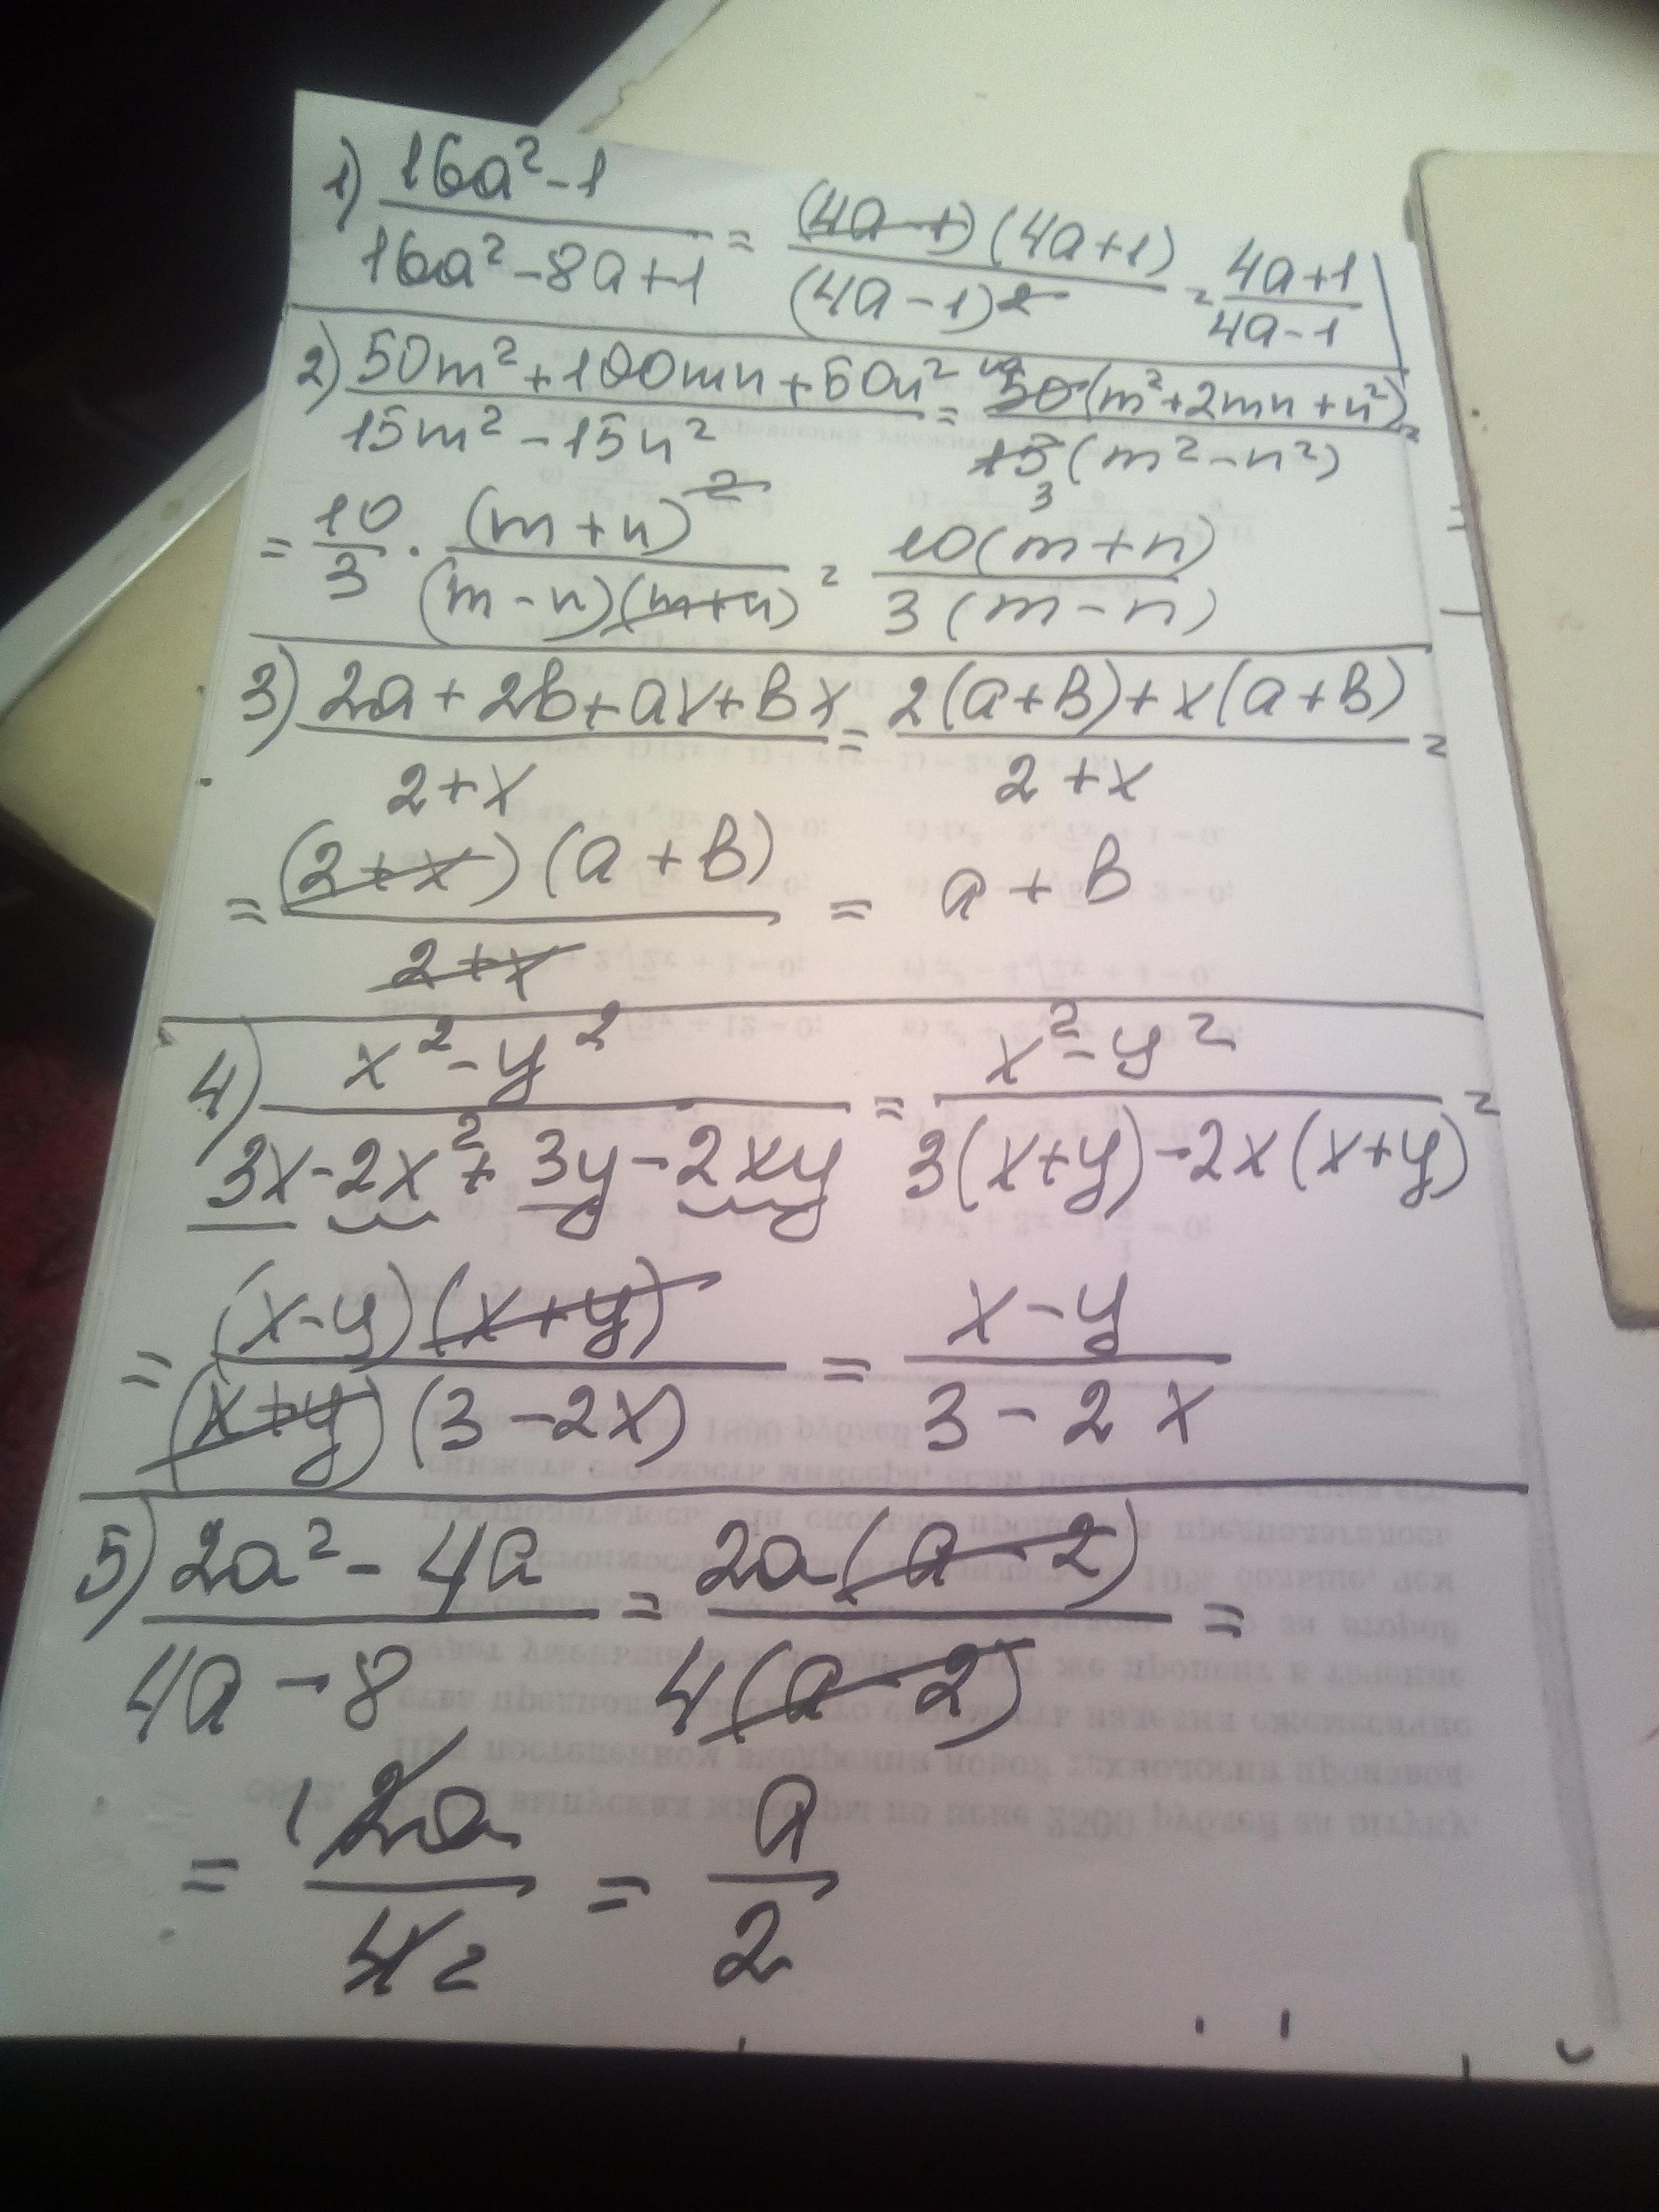 1) (16a² - 1)/(16a² - 8a + 1) = ((4a - 1)(4a + 1))/((4a - 1)²) = (4a + 1)/(4a - 1)
2) (50m² + 100mn + 50n²)/(15m² - 15n²) = (50(m² + 2mn + n²))/(15(m² - n²)) =
= 10/3 · (m + n)²/((m - n)(m + n)) = (10(m + n))/(3(m - n))
3) (2a + 2b + ax + bx)/(2 + x) = (2(a + b) + x(a + b))/(2 + x) =
= ((2 + x)(a + b))/(2 + x) = a + b
4) (x² - y²)/(3x - 2x² + 3y - 2xy) = (x² - y²)/(3(x + y) - 2x(x + y)) =
= ((x - y)(x + y))/((x + y)(3 - 2x)) = (x - y)/(3 - 2x)
5) (2a² - 4a)/(4a - 8) = (2a(a - 2))/(4(a - 2)) =
= 2a/4 = a/2